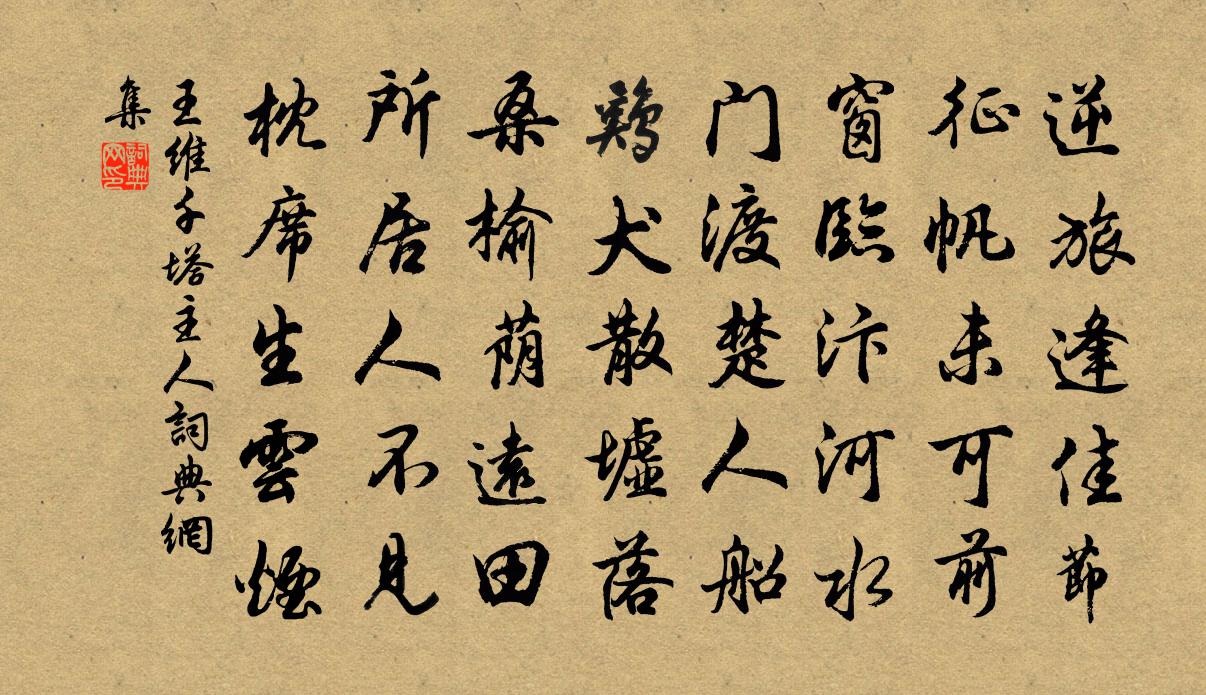 逆旅逢佳節
征帆未可前
窗臨汴河水
門渡楚人船
鷄犬散墟落
桑榆蔭遠田
所居人不見
枕席生雲煙
王維千塔主人詞典網
集
詞典網印